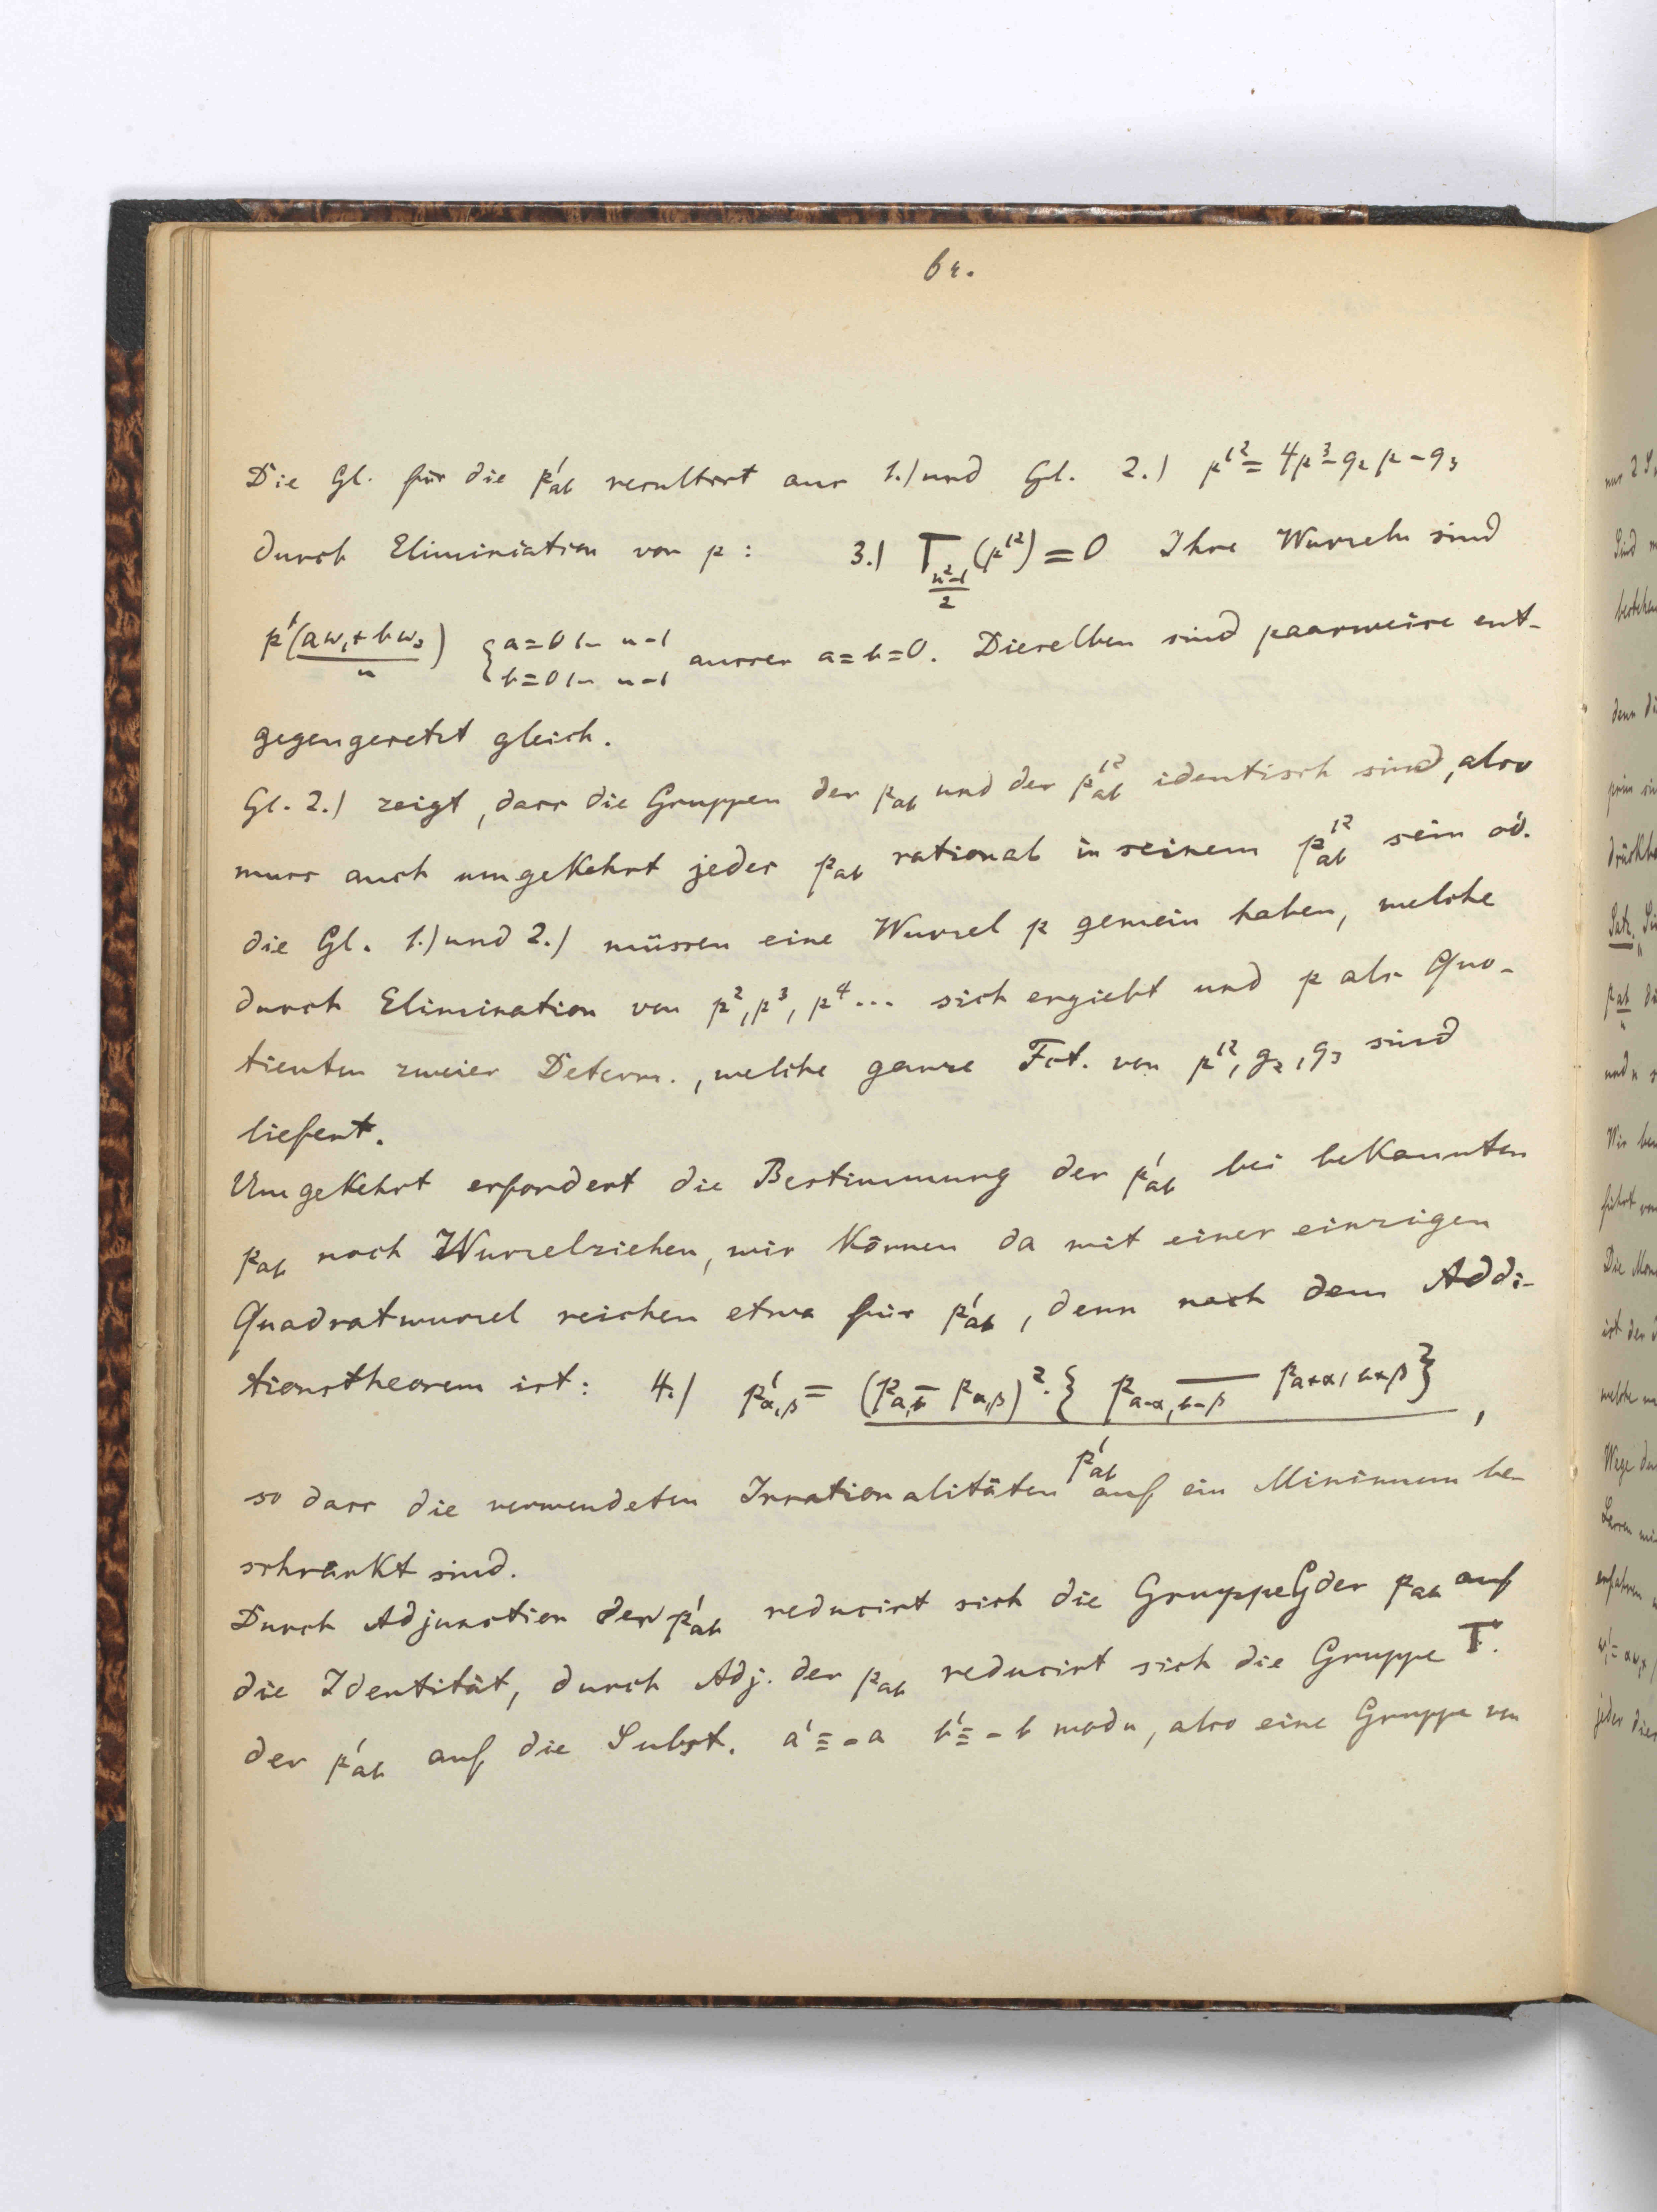 62.
Die Gl. für die p'ab resultirt aus 1.) und Gl. 2.) p'² = 4p³ - g₂p - g₃
durch Eliminiation von p: 3.) T_{(n²-1)/2} (p'²) = 0 Ihre Wurzeln sind
p'((aω₁ + bω₃)/n) { a = 0 1 - n-1 b = 0 1 - n-1 ausser a = b = 0. Dieselben sind paarweise ent-
gegengesetzt gleich.
Gl. 2.) zeigt, dass die Gruppen der pab und der p'²ab identisch sind, also
muss auch umgekehrt jedes pab rational in seinem p'²ab sein od.
die Gl. 1.) und 2.) müssen eine Wurzel p gemein haben, welche
durch Elimination von p², p³, p⁴... sich ergiebt und p als Quo-
tienten zweier Determ., welche ganze Fct. von p'², g₂, g₃ sind
liefert.
Umgekehrt erfordert die Bestimmung der p'ab bei bekannten
pab noch Wurzelziehen, wir können da mit einer einzigen
Quadratwurzel reichen etwa für p'ab, denn nach dem Addi-
tionstheorem ist: 4.) p'α,β = (pa,b - pα,β)² · { pa-α, b-β — pa+α, b+β } / p'ab ,
so dass die verwendeten Irrationalitäten auf ein Minimum be-
schränkt sind.
Durch Adjunction der p'ab reducirt sich die Gruppe G der pab auf
die Identität, durch Adj. der pab reducirt sich die Gruppe T.
der p'ab auf die Subst. a' ≡ - a b' ≡ - b mod n, also eine Gruppe von